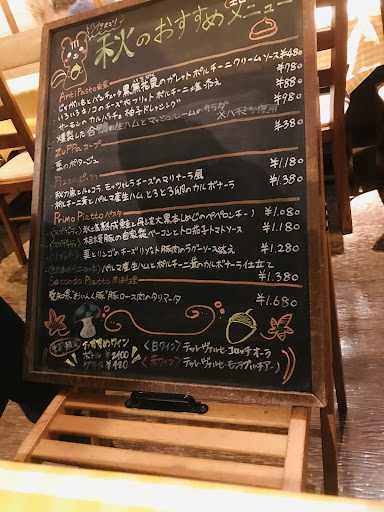 秋のおすすめメニュー
Antipasto 前菜
じゃがいもとパンチェッタと黒無花果のガレット ポルチーニクリームソース ¥480
いろいろキノコのチーズ ¥780
サーモンのカルパッチョ 柚子ドレッシング ¥880
燻製した合鴨の生ハムとマッシュルームのサラダ ※ハチミツ使用 ¥980
Zuppa スープ
栗のポタージュ ¥380
Pizza ピッツァ
秋刀魚とパルコラ、モッツァレラチーズのマリナーラ風 ¥1.180
ポルチーニ茸とパルマ産生ハム、とろとろ卵のカルボナーラ ¥1.380
Primo Piatto パスタ
氷温熟成鮭と丹波大黒本しめじのペペロンチーノ ¥1.080
相模豚の自家製ベーコンとトロ茄子トマトソース ¥1.180
栗とリンゴのチーズリゾット 豚肉のラグーソース添え ¥1.280
パルマ産生ハムとポルチーニ茸のカルボナーラ仕立て ¥1.380
Secondo Piatto 肉料理
愛知県"おいんく豚"豚ロース肉のタリアータ ¥1.680
おすすめワイン
ボトル ¥2400
グラス ¥480
〈白ワイン〉テッレ・ヴァルセ・コロッチオーラ
〈赤ワイン〉テッレ・ヴァルセ・モンテプルチアーノ